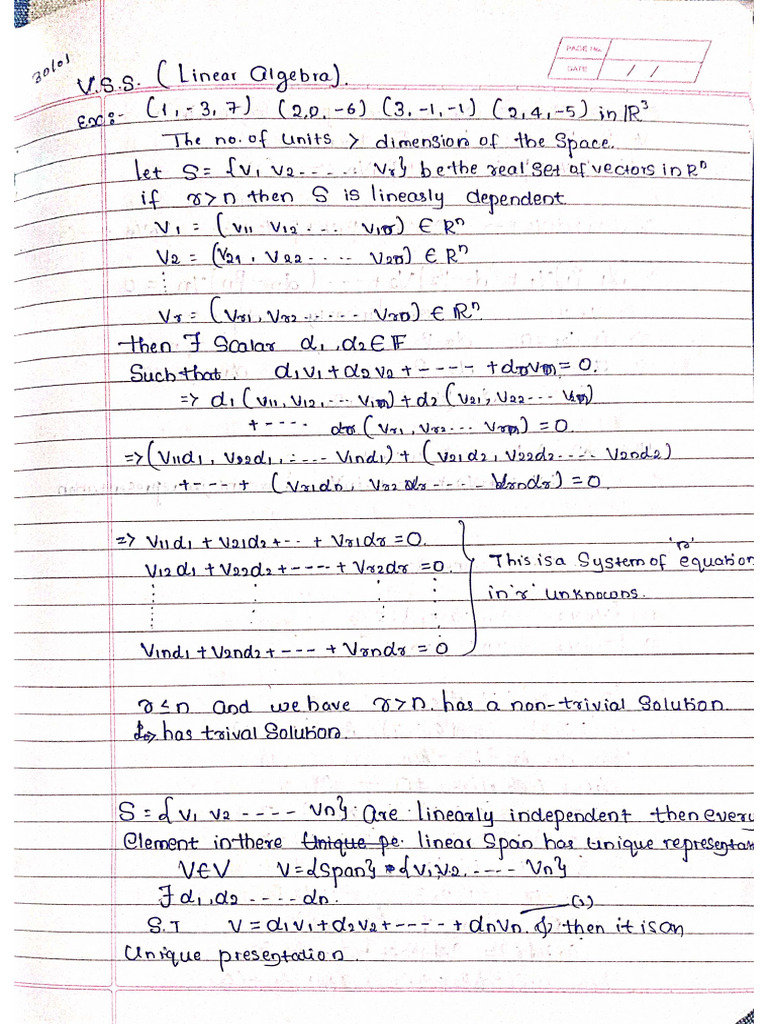 30/01
PAGE No.
DATE / /
V.S.S. (Linear Algebra).
Ex:- (1,-3,7) (2,0,-6) (3,-1,-1) (2,4,-5) in ℝ³
The no. of units > dimension of the Space.
let S= {v₁ v₂ ---- vᵣ} be the real set of vectors in Rⁿ
if r>n then S is linearly dependent.
V₁ = (v₁₁ v₁₂ ... v₁ₙ) ∈ Rⁿ
V₂ = (v₂₁, v₂₂ .... v₂ₙ) ∈ Rⁿ
⋮
Vᵣ = (vᵣ₁, vᵣ₂ ...... vᵣₙ) ∈ Rⁿ
then ∃ Scalar d₁, d₂ ∈ F
Such that. d₁v₁+d₂v₂+-----+dᵣvᵣ=0.
=> d₁(v₁₁, v₁₂, ... v₁ₙ)+d₂(v₂₁, v₂₂... v₂ₙ)
+---- dᵣ(vᵣ₁, vᵣ₂... vᵣₙ) =0.
=>(v₁₁d₁, v₂₂d₁, .... v₁ₙd₁) + (v₂₁d₂, v₂₂d₂.... v₂ₙd₂)
+---+ (vᵣ₁dᵣ, vᵣ₂dᵣ----- vᵣₙdᵣ)=0
=> v₁₁d₁ + v₂₁d₂ +-- + vᵣ₁dᵣ =0.
v₁₂d₁ + v₂₂d₂ +---- + vᵣ₂dᵣ =0. This is a System of 'n' equation
in 'r' unknowns.
v₁ₙd₁ + v₂ₙd₂ +--- + vᵣₙdᵣ = 0
r≤n and we have r>n. has a non-trivial Solution
has trival Solution.
S={v₁ v₂ ---- vₙ} are linearly independent then every
Element in there Unique pe. linear Span has unique representan
V∈V V={Span} {v₁,v₂, ---- vₙ}
∃ d₁,d₂ ---- dₙ. (1)
S.T V=d₁v₁+d₂v₂+-----+dₙvₙ. then it is an
Unique presentation.